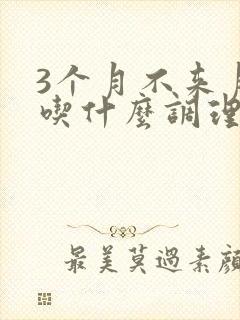 3个月不来
喫什麽調理
最美莫過素顔